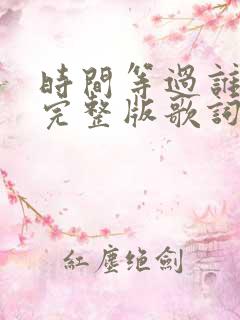 時間等過誰
完整版歌詞
紅塵绝劍